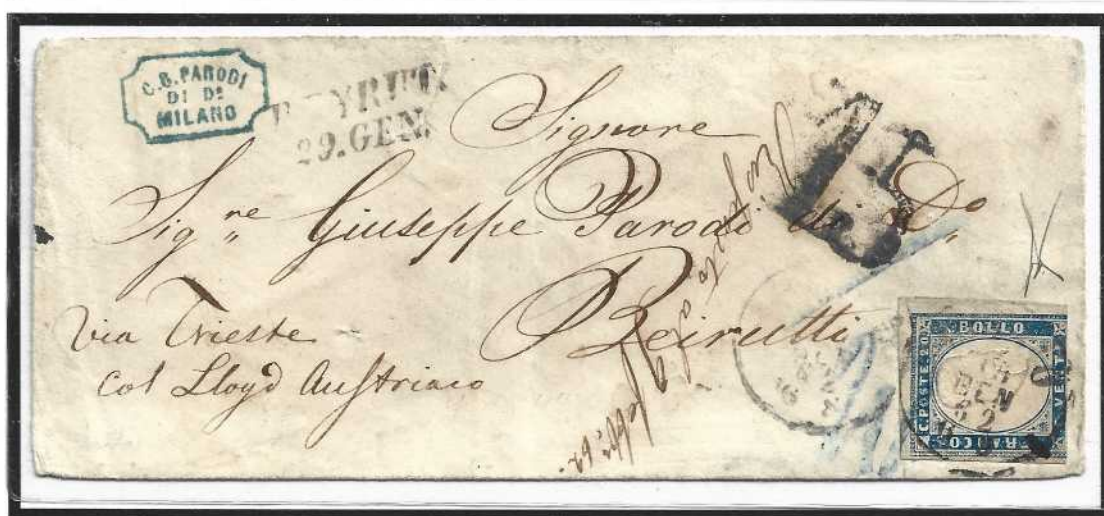 C. B. PARODI
DI Dº
MILANO
BEYRUT
29. GEN.
Signore
Sigʳᵉ Giuseppe Parodi di Dº
Beirutti
Via Trieste
col Lloyd Austriaco
BOLLO
C. POSTE. 20
VENTI
FRANCO
GEN
62